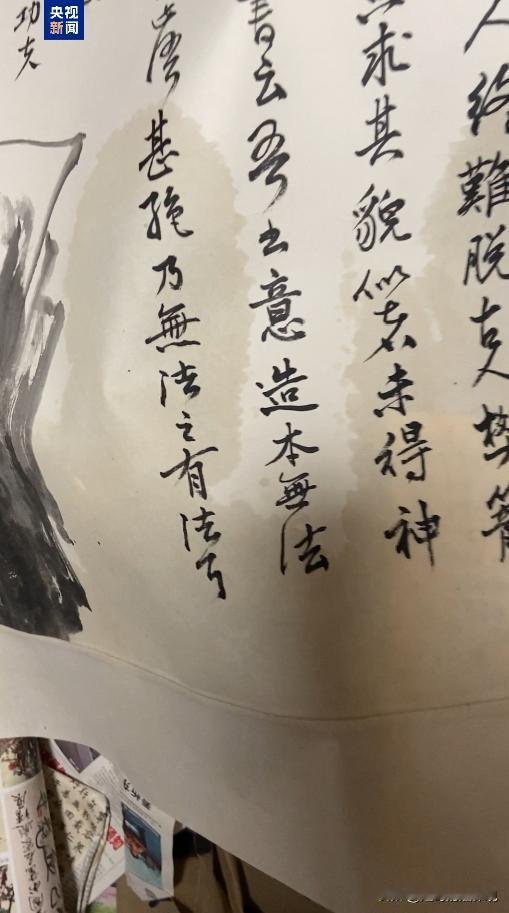 央视新闻
人終難脫古人樊籠
求其貌似未得神
書云吾書意造本無法
語甚絶乃無法之有法
功夫